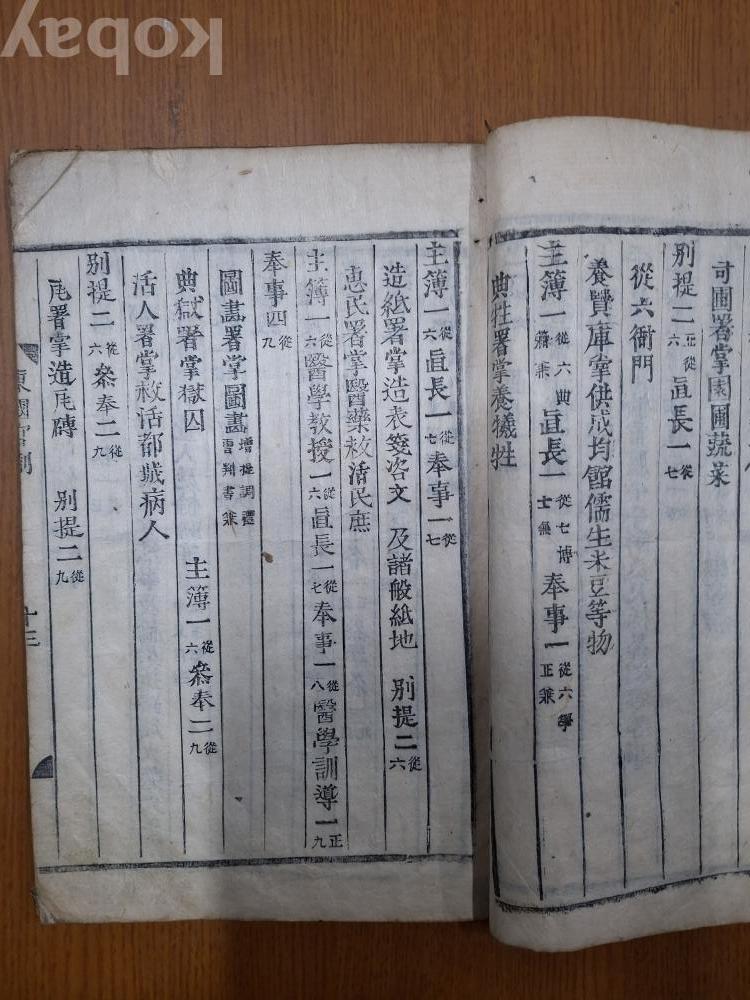 kobay
司圃署掌園圃蔬菜
別提二正從六直長一從七
從六衙門
養賢庫掌供成均館儒生米豆等物
主簿一從六典籍兼直長一從七博士兼奉事一從六學正兼
典牲署掌養犧牲
主簿一從六直長一從七奉事一從七
造紙署掌造表箋咨文 及諸般紙地 別提二從六
惠民署掌醫藥救活民庶
主簿一從六醫學教授一從六直長一從七奉事一從八醫學訓導一正九
奉事四從九
圖畫署掌圖畫增提調禮曹判書兼
典獄署掌獄囚 主簿一從六叅奉二從九
活人署掌救活都城病人
別提二從六叅奉二從九
瓦署掌造瓦磚 別提二從九
東國官制 十三